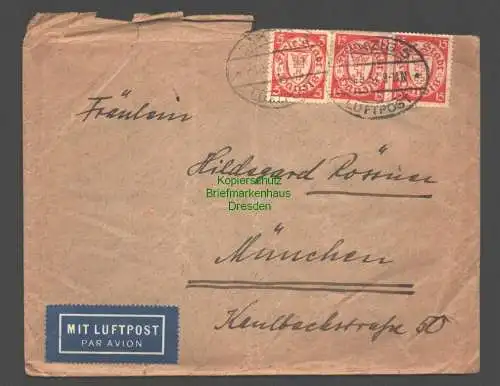 LUFTPOST
Fräulein
Hildegard Rössner
Kopierschutz
Briefmarkenhaus
Dresden
München
MIT LUFTPOST
PAR AVION
Kaulbachstraße 50